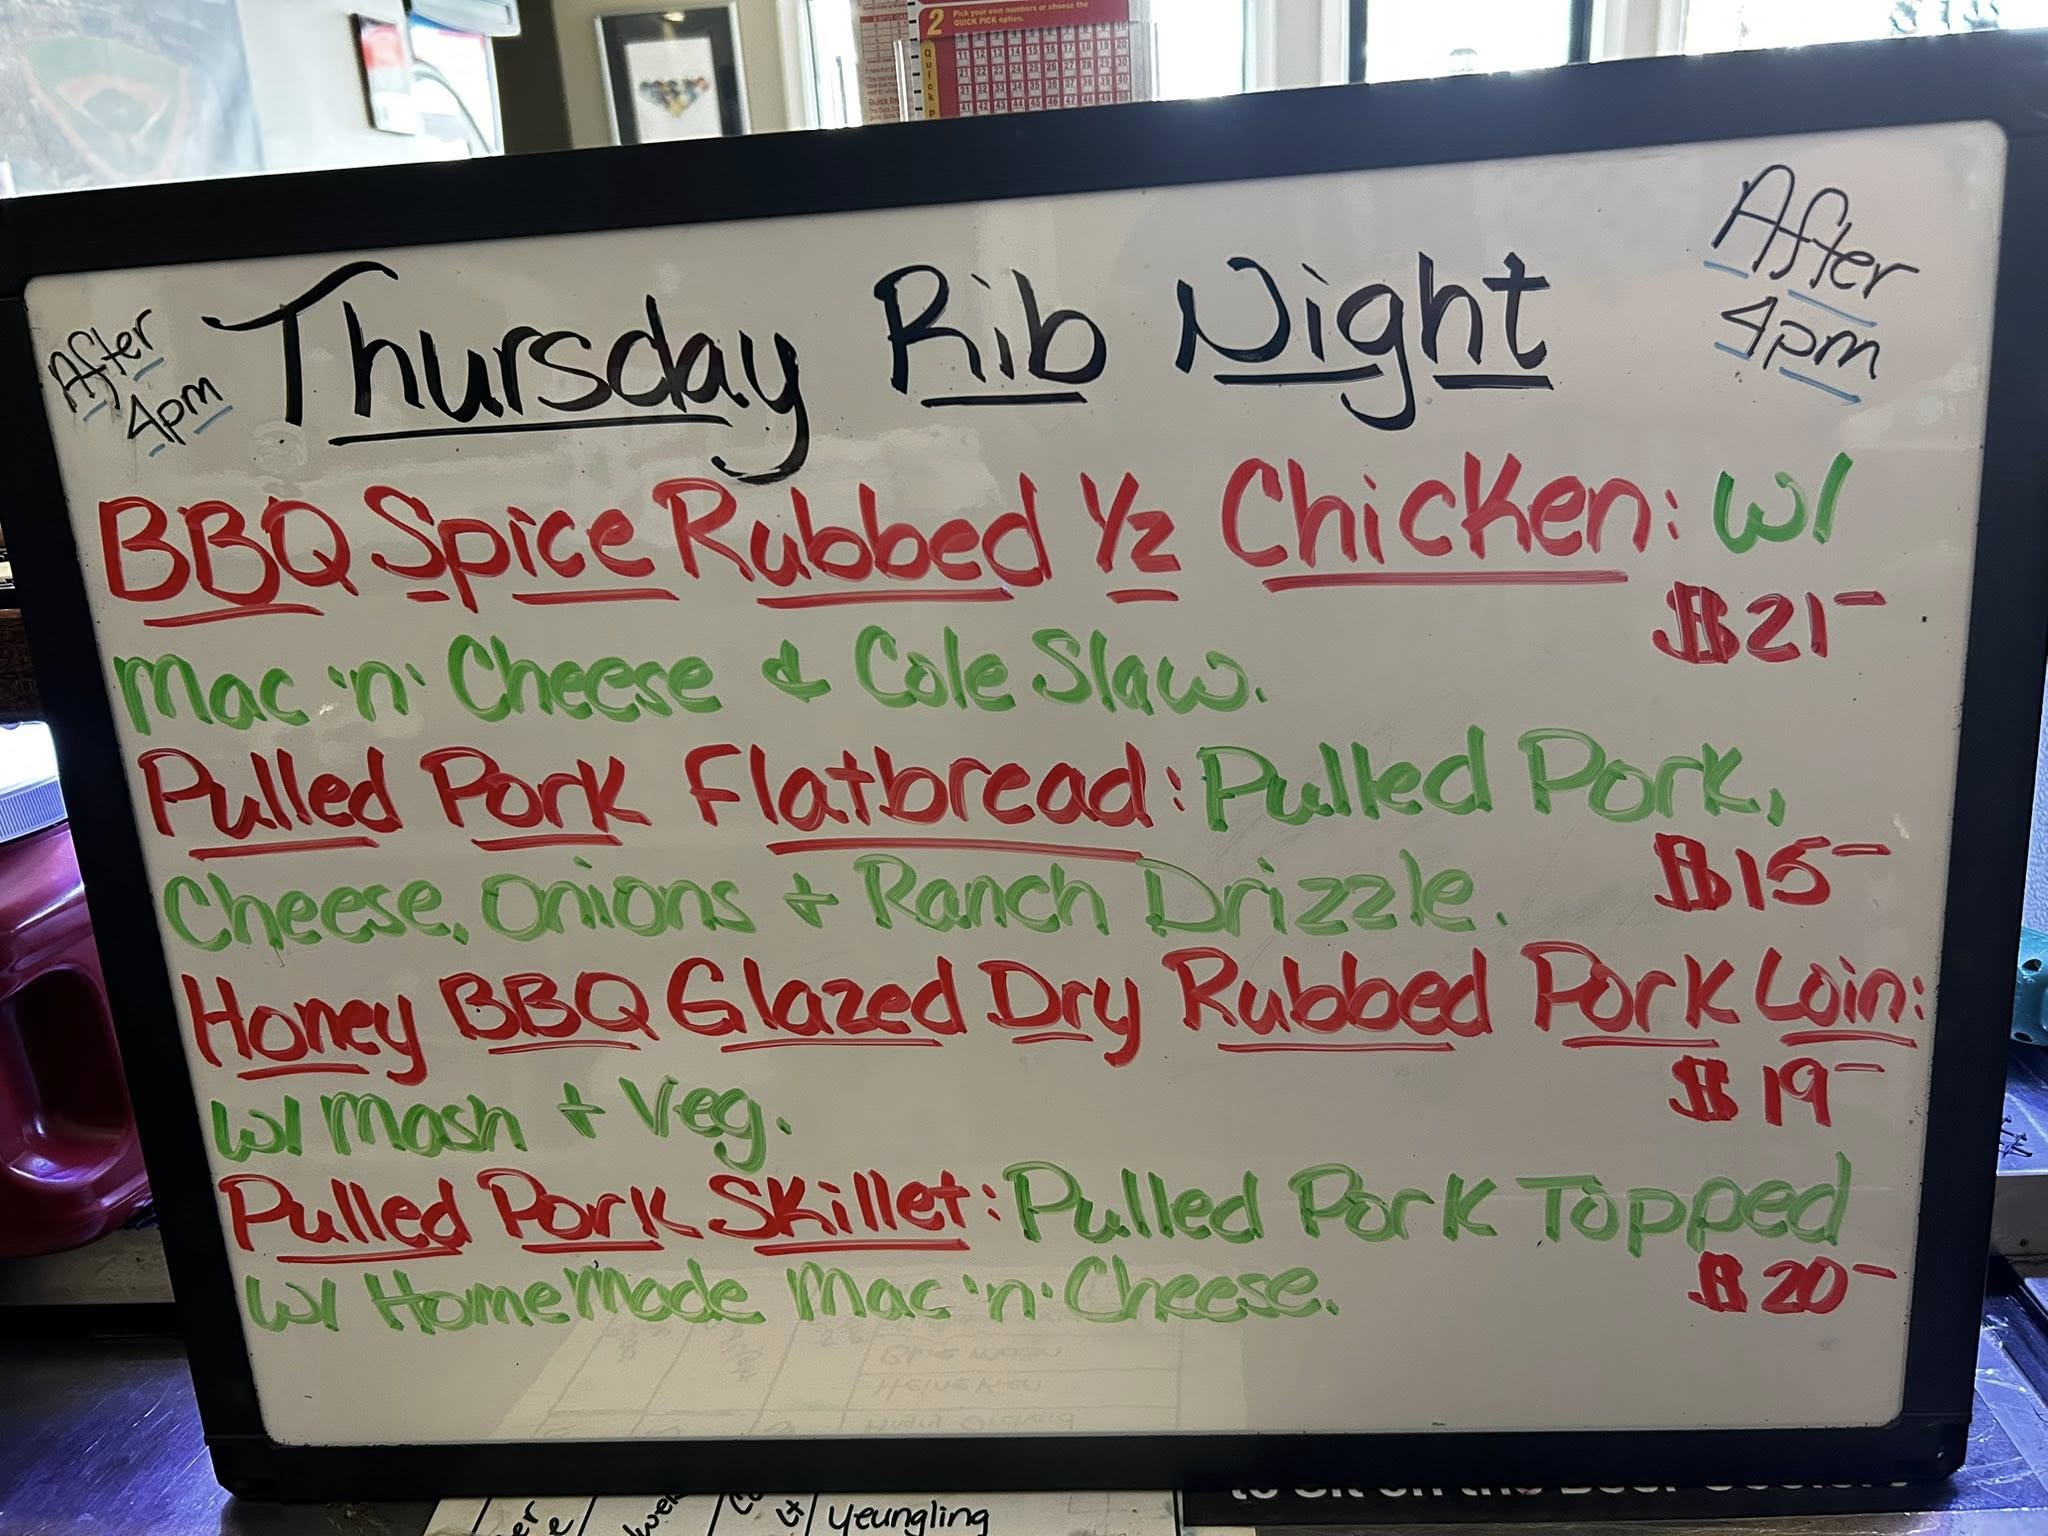 2 Pick your own numbers or choose the
QUICK PICK option.
After
4pm
Thursday Rib Night
After
4pm
BBQ Spice Rubbed 1/2 Chicken: w/
$21-
Mac 'n' Cheese & Cole Slaw.
Pulled Pork Flatbread: Pulled Pork,
$15-
Cheese, Onions + Ranch Drizzle.
Honey BBQ Glazed Dry Rubbed Pork Loin:
$19-
w/ Mash + Veg.
Pulled Pork Skillet: Pulled Pork Topped
w/ HomeMade Mac 'n' Cheese. $20-
Blue Moon
Heineken
Angry Orchard
Yeungling